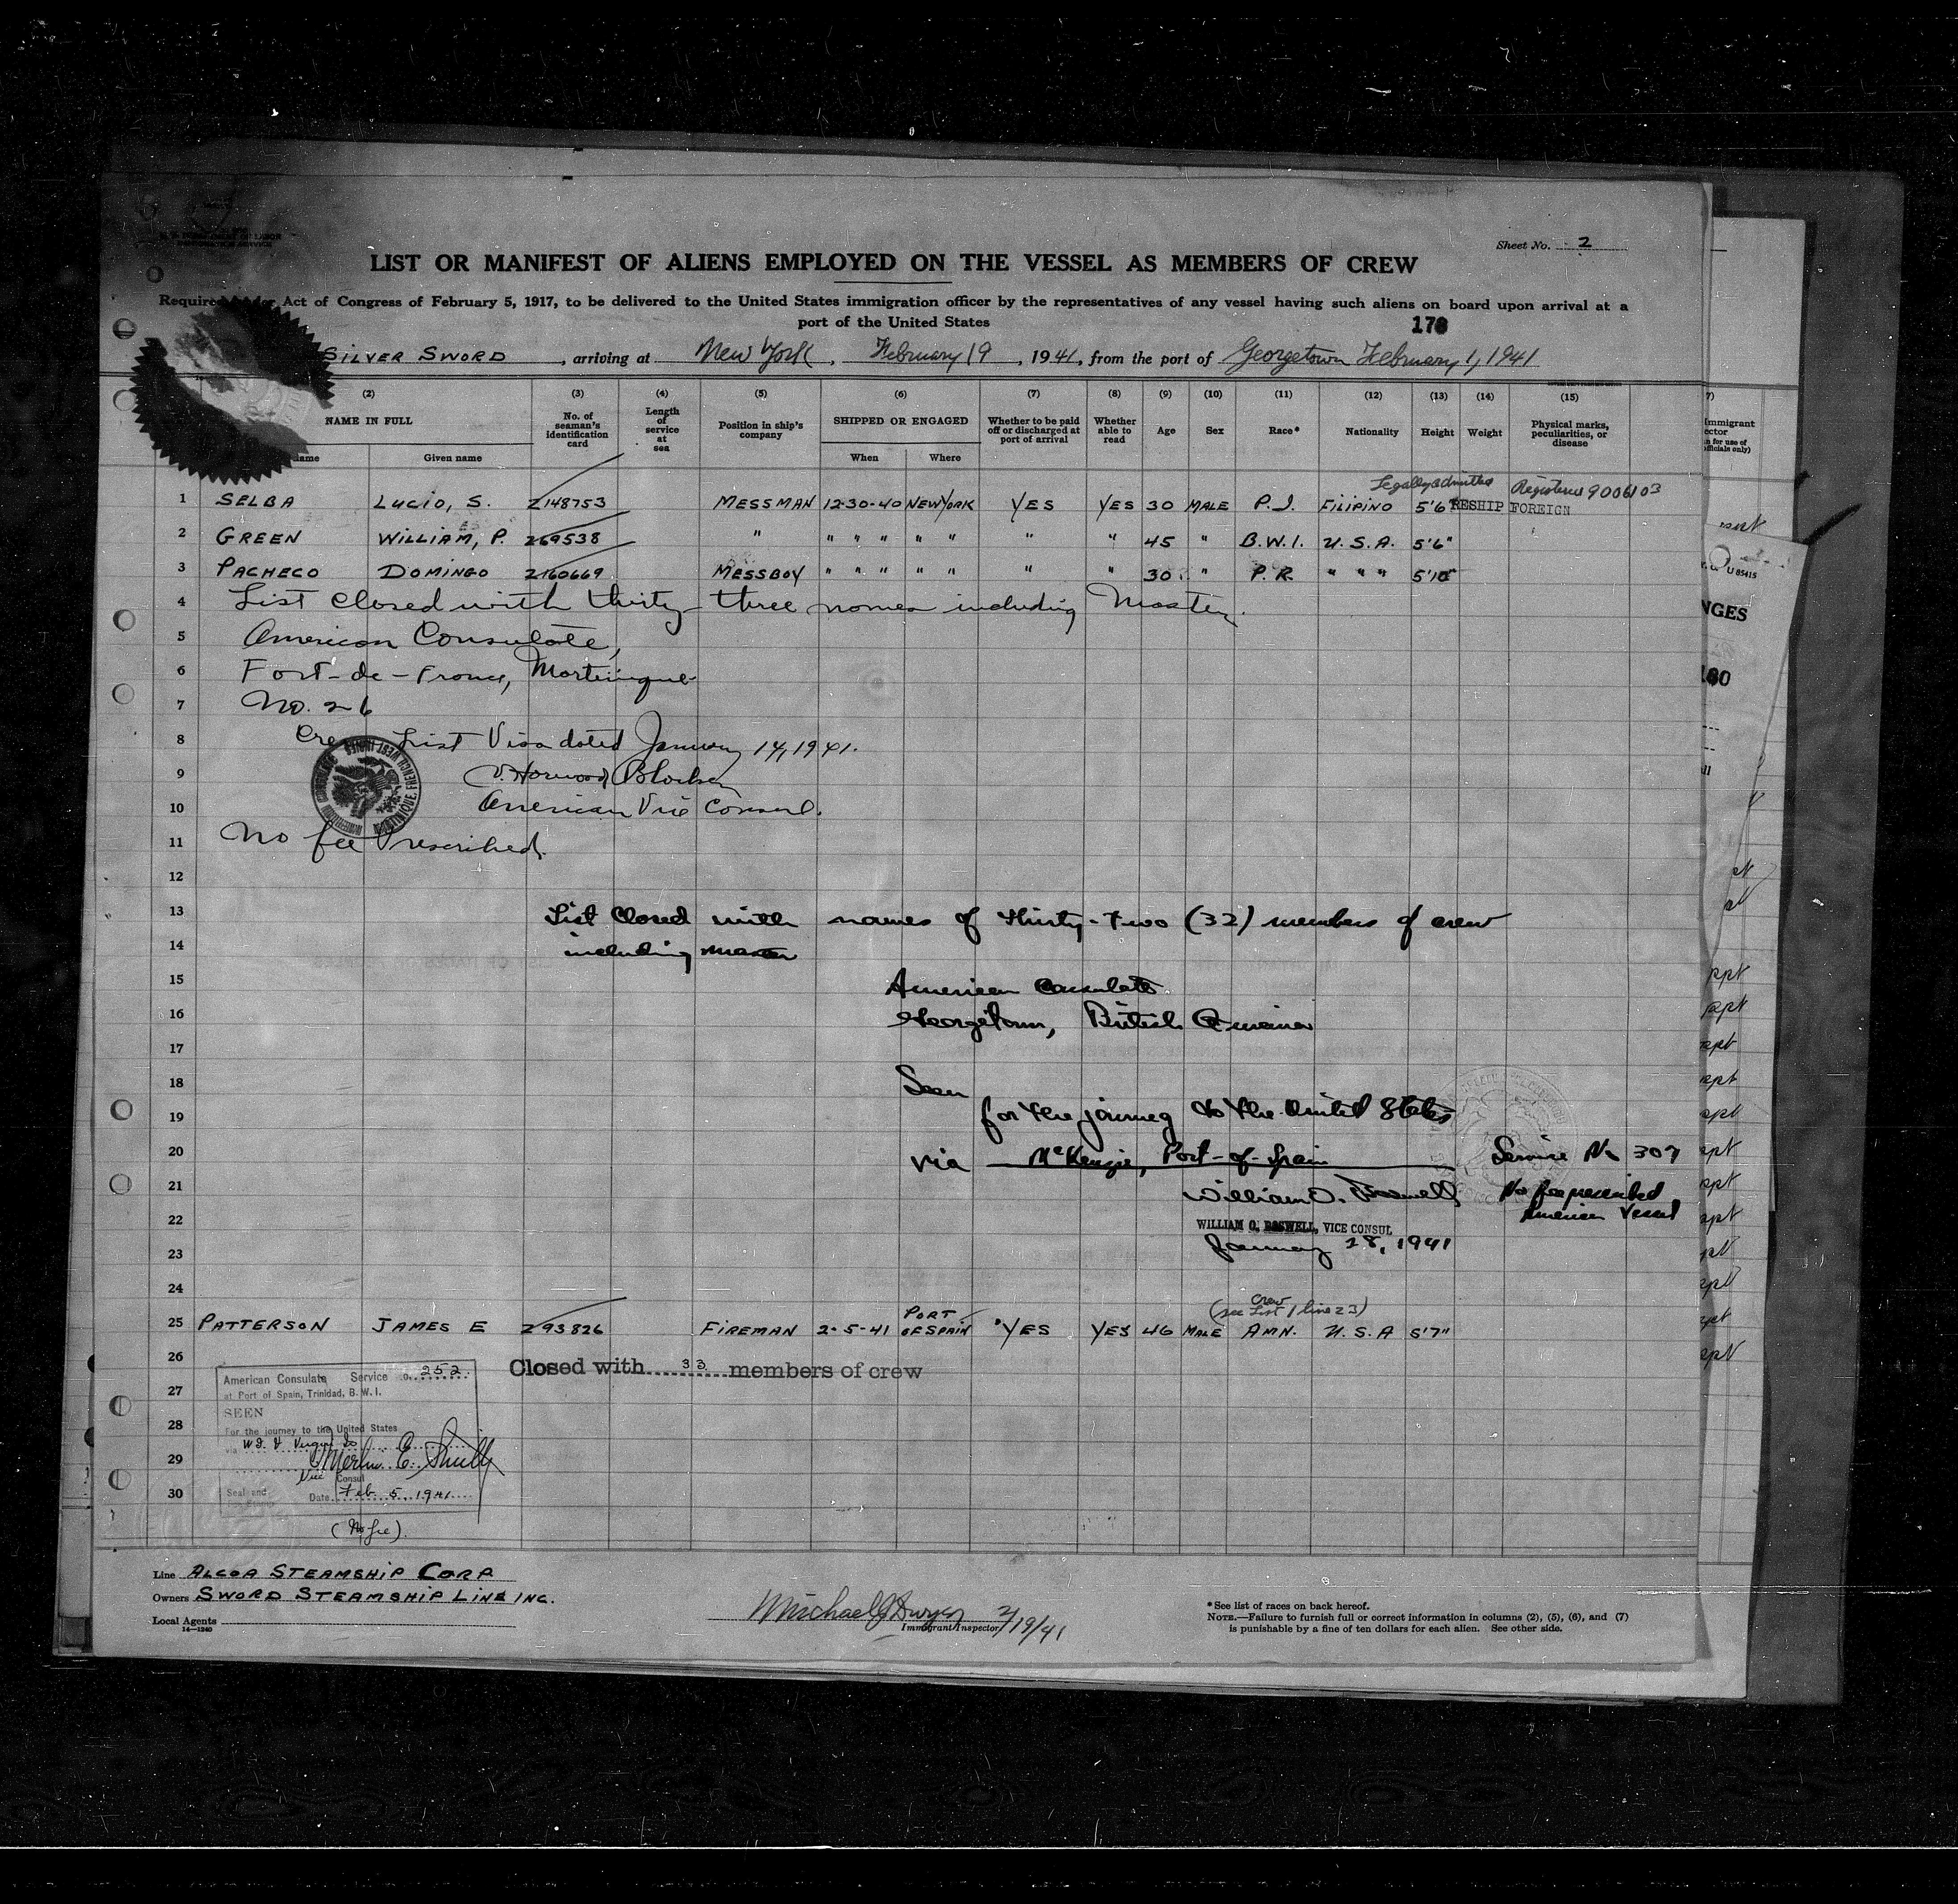 U. S. DEPARTMENT OF LABOR
IMMIGRATION SERVICE
Sheet No. 2
LIST OR MANIFEST OF ALIENS EMPLOYED ON THE VESSEL AS MEMBERS OF CREW
Required under Act of Congress of February 5, 1917, to be delivered to the United States immigration officer by the representatives of any vessel having such aliens on board upon arrival at a
port of the United States
SILVER SWORD , arriving at New York , February 19 , 1941, from the port of Georgetown February 1, 1941
(2) (3) (4) (5) (6) (7) (8) (9) (10) (11) (12) (13) (14) (15)
NAME IN FULL No. of seaman's identification card Length of service at sea Position in ship's company SHIPPED OR ENGAGED Whether to be paid off or discharged at port of arrival Whether able to read Age Sex Race* Nationality Height Weight Physical marks, peculiarities, or disease
Given name When Where
Legally admitted Registered 9006103
1 SELBA LUCIO, S. Z148753 MESSMAN 12-30-40 NEW YORK YES YES 30 MALE P.I. FILIPINO 5'6" RESHIP FOREIGN
2 GREEN WILLIAM, P. Z69538 " " " " " " " " 45 " B.W.I. U.S.A. 5'6"
3 PACHECO DOMINGO Z160669 MESSBOY " " " " " " " 30 " P.R. " " " 5'10"
4 List closed with thirty-three names including Master.
5 American Consulate,
6 Fort-de-France, Martinique
7 No. 26
8 Crew List Visa dated January 14, 1941.
9 V. Harwood Blocker
10 American Vice Consul.
11 No fee Prescribed.
12
13 List closed with names of thirty-two (32) members of crew
14 including master
15 American Consulate
16 Georgetown, British Guiana
17
18 Seen
19 for the journey to the United States
20 via McKenzie, Port-of-Spain Service No 307
21 William O. Boswell No fee prescribed
22 WILLIAM O. BOSWELL, VICE CONSUL American Vessel
23 January 28, 1941
24
Crew
(see List 1 line 23)
25 PATTERSON JAMES E Z93826 FIREMAN 2-5-41 PORT OF SPAIN YES YES 46 MALE AMN. U.S.A 5'7"
26 Closed with 33 members of crew
American Consulate Service No. 252
27 at Port of Spain, Trinidad, B. W. I.
SEEN
28 For the journey to the United States
via
29 Merlin E. Smith
Vice Consul
30 Seal and
Date Feb 5, 1941
(No fee).
Line ALCOA STEAMSHIP CORP
Owners SWORD STEAMSHIP LINE INC.
Local Agents
14—1240
Michael J Dwyer 2/19/41
Immigrant Inspector
*See list of races on back hereof.
NOTE.—Failure to furnish full or correct information in columns (2), (5), (6), and (7)
is punishable by a fine of ten dollars for each alien. See other side.
U 85415